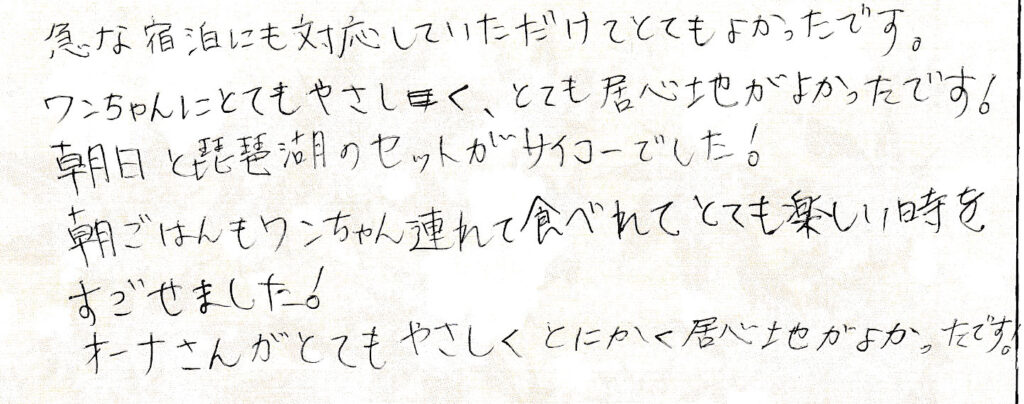 急な宿泊にも対応していただけてとてもよかったです。
ワンちゃんにとてもやさしく、とても居心地がよかったです!
朝日と琵琶湖のセットがサイコーでした!
朝ごはんもワンちゃん連れて食べれてとても楽しい時を
すごせました!
オーナさんがとてもやさしくとにかく居心地がよかったです。